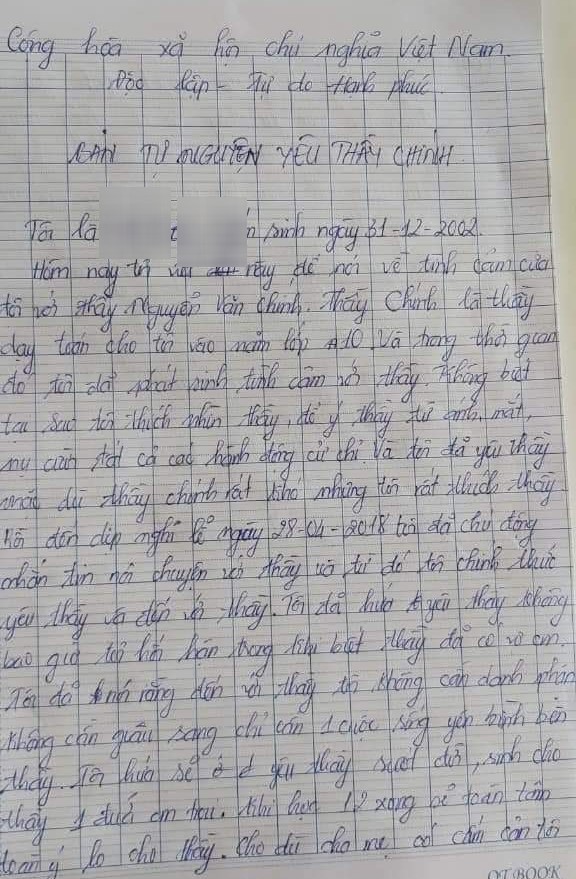 Cộng hòa xã hội chủ nghĩa Việt Nam
Độc lập - Tự do Hạnh phúc
BẢN TỰ NGUYỆN YÊU THẦY CHINH
Tôi là sinh ngày 31-12-2002.
Hôm nay tôi này để nói về tình cảm của
tôi với thầy Nguyễn Văn Chinh. Thầy Chinh là thầy
dạy toán cho tôi vào năm lớp A10. Và trong thời gian
đó tôi đã phát sinh tình cảm với thầy. Không biết
tại sao tôi thích nhìn thầy, để ý thầy từ ánh mắt,
nụ cười tất cả các hành động cử chỉ. Và tôi đã yêu thầy
mặc dù thầy chinh rất khó nhưng tôi rất thích thầy.
đến dịp nghỉ lễ ngày 28-04-2018 tôi đã chủ động
nhắn tin nói chuyện với thầy và từ đó tôi chính thức
yêu thầy và đến với thầy. Tôi đã hứa yêu thầy không
bao giờ tôi hối hận trong khi biết thầy đã có vợ con.
Tôi đã rằng đến với thầy tôi không cần danh phận
không cần giàu sang chỉ cần 1 cuộc sống yên bình bên
thầy. Tôi hứa sẽ yêu thầy suốt đời, sinh cho
thầy 1 đứa con trai. Khi học 12 xong sẽ toàn tâm
toàn ý lo cho thầy. Cho dù cha mẹ có cấm cản tôi
OT BOOK